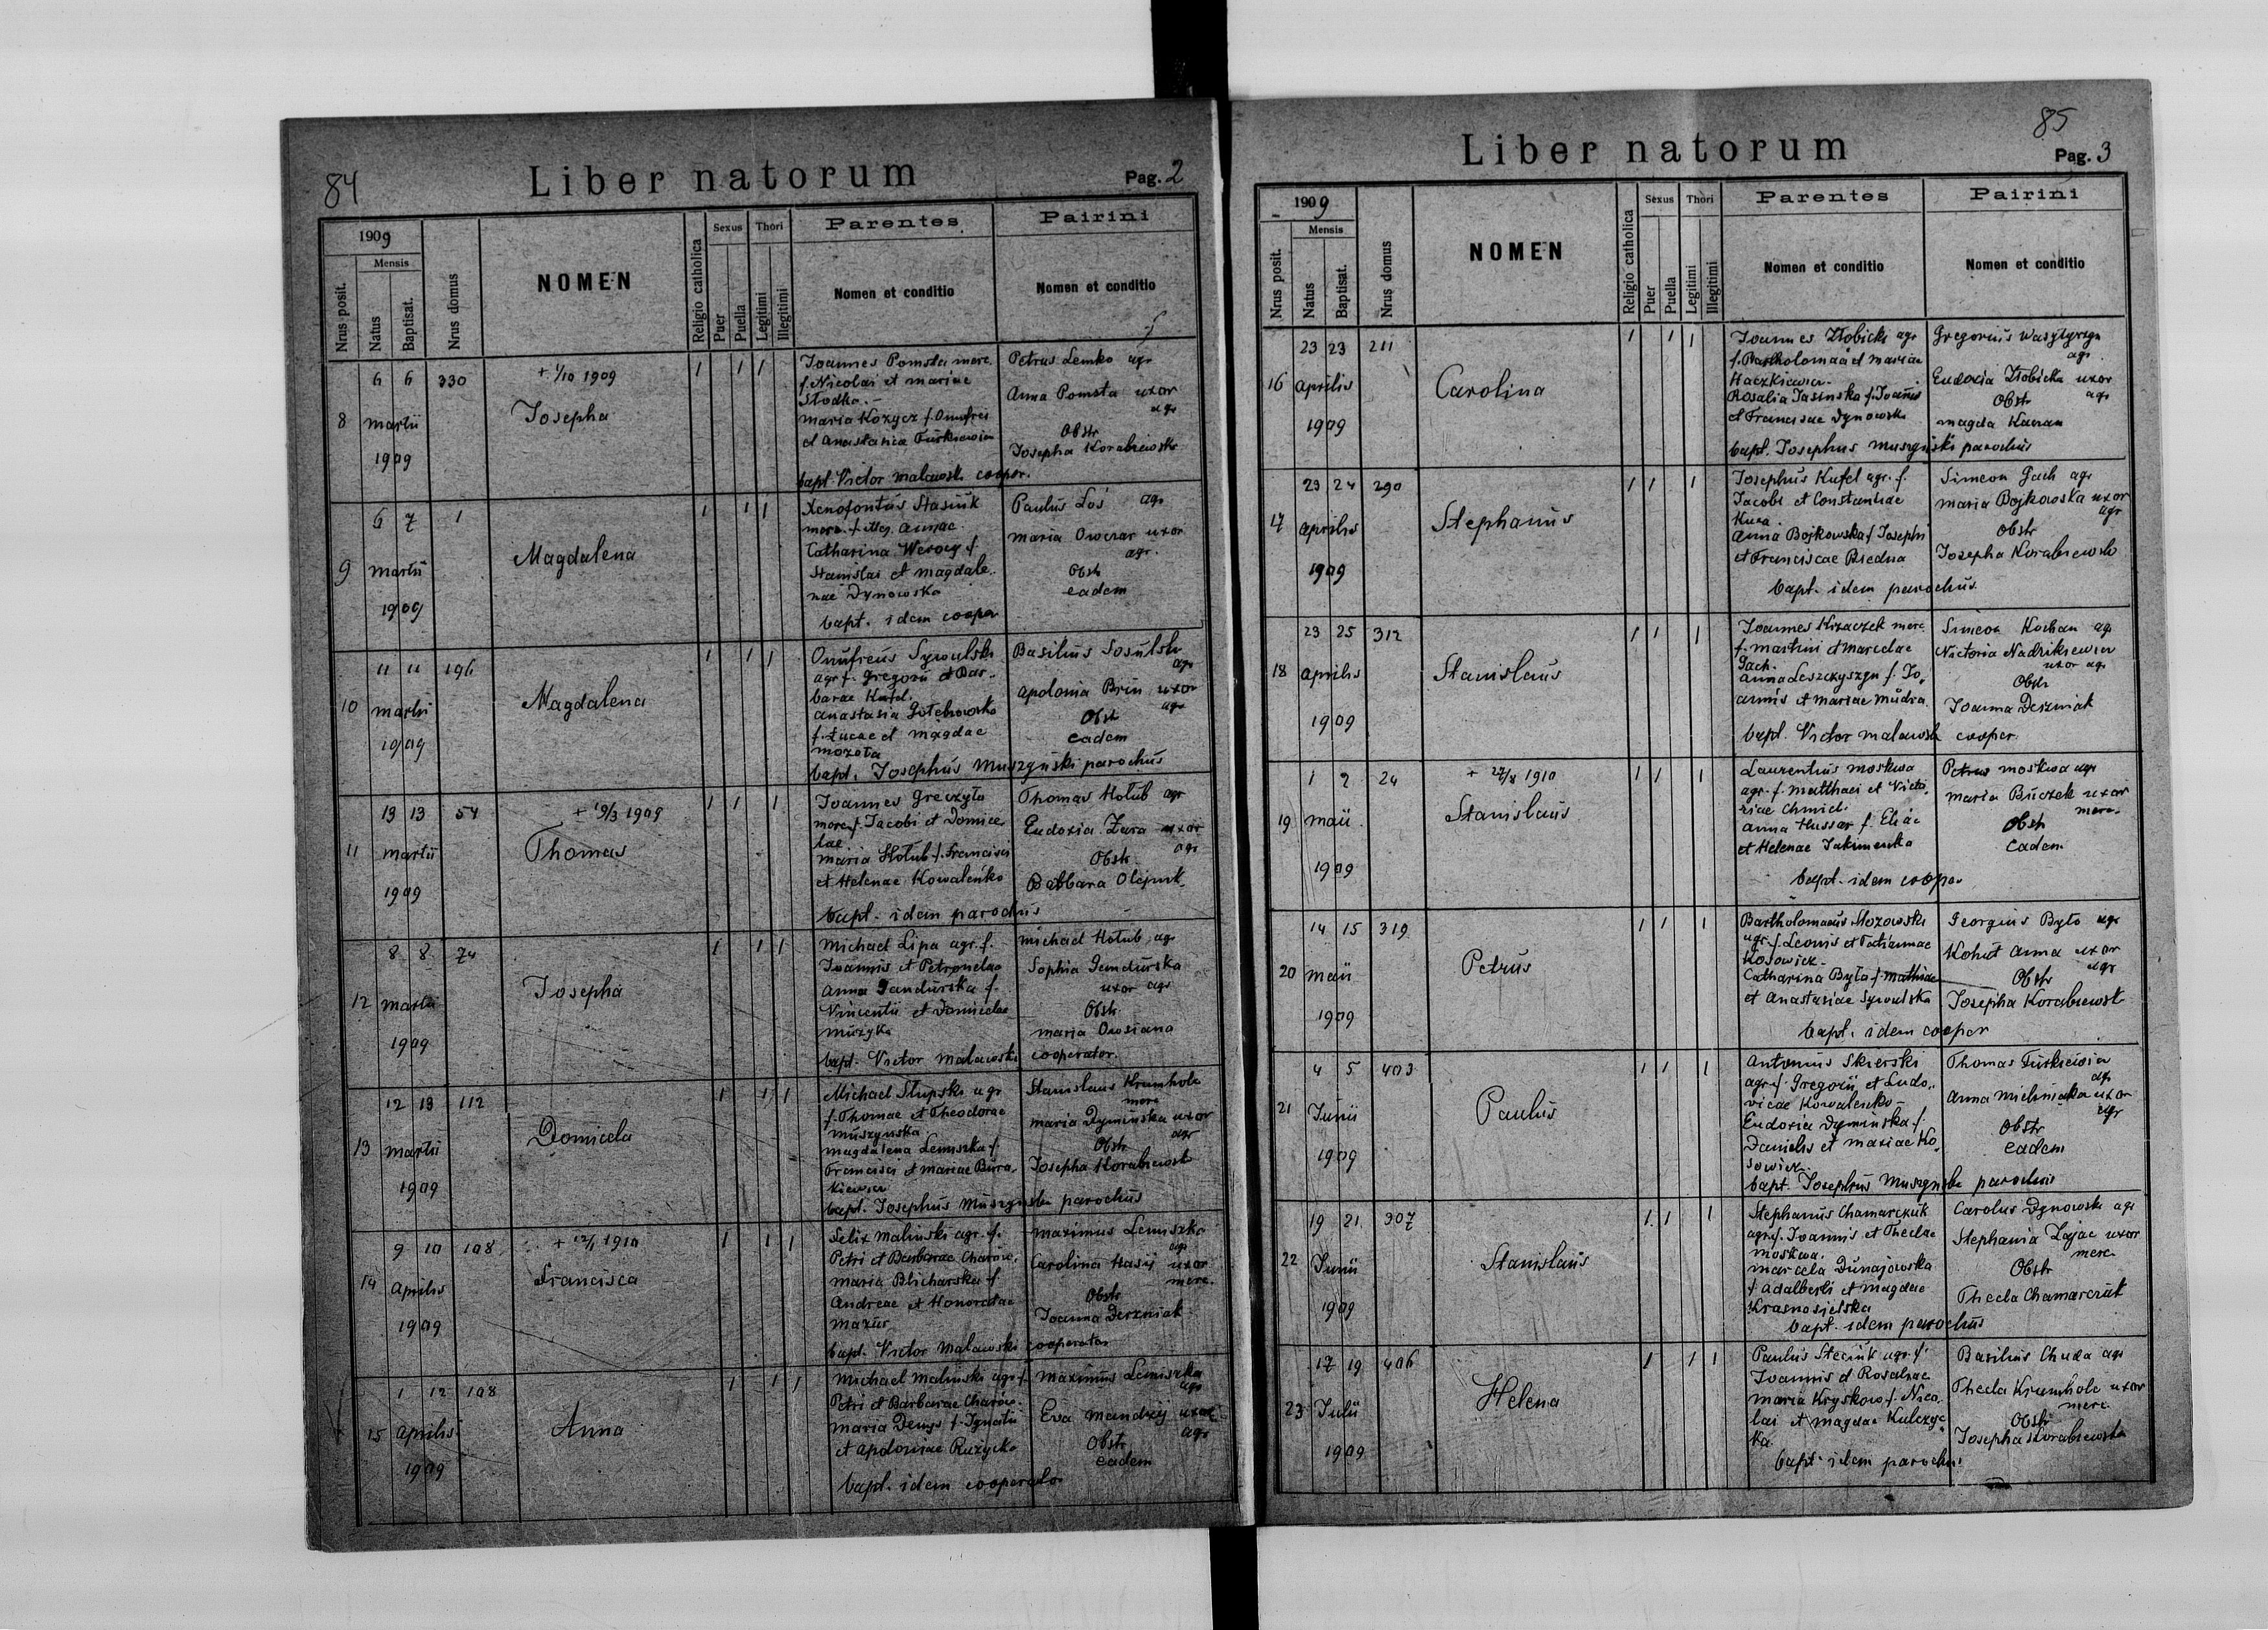 84
Liber natorum
Pag. 2
1909
Mensis
Nrus posit.
Natus
Baptisat.
Nrus domus
NOMEN
Religio catholica
Sexus
Puer
Puella
Thori
Legitimi
Illegitimi
Parentes
Nomen et conditio
Pairini
Nomen et conditio
8
6 6 330
Martii
1909
+ 1/10 1909
Josepha
1 1 1
Joannes Pomsta merc.
f. Nicolai et Mariae
Słodka.-
Maria Kozycz f. Onufrei
et Anastasiae Turkiewicz
bapt. Victor Malawski cooper.
Petrus Lemko agr
Anna Pomsta uxor
agr
Obstr
Josepha Korabiewska
9
6 7 1
Martii
1909
Magdalena
1 1 1
Xenofontus Stasiuk
merc. f. illeg. Annae
Catharina
Stanislai et Magdale-
nae Dynowska
bapt. idem cooper
Paulus Łoś agr
Maria Owczar uxor
agr.
Obstr
eadem
10
11 11 196
Martii
1909
Magdalena
1 1 1
Onufreus Syroulski
agr f. Gregorii et Bar-
barae Kufel.
Anastasia Gołębiowska
f. Lucae et Magdae
Mozota
bapt. Josephus Muszyński parochus
Basilius Sosulski
agr
Apolonia Brin uxor
agr
Obstr
eadem
11
13 13 54
Martii
1909
+ 19/3 1909
Thomas
1 1 1
Joannes Greczyło
merc f. Jacobi et Domice
lae
Maria Hołub f. Francisci
et Helenae Kowalenko
bapt. idem parochus
Thomas Hołub agr
Eudoxia Żura uxor
agr
Obstr.
Barbara Olejnik
12
8 8 74
Martii
1909
Josepha
1 1 1
Michael Lipa agr. f.
Joannis et Petronelae
Anna Gendurska f.
Vincentii et Domicelae
Muzyka
bapt. Victor Malawski cooperator.
Michael Hołub agr
Sophia Gendurska
uxor agr
Obstr.
Maria Owsiana
13
12 13 112
Martii
1909
Domicela
1 1 1
Michael Słupski agr
f. Thomae et Theodorae
Muszynska
Magdalena Lemiszka f.
Francisci et Mariae Bura-
kiewicz
bapt. Josephus Muszyński parochus
Stanislaus Krumholc
merc
Maria Dyminska uxor
agr
Obstr
Josepha Korabiewska
14
9 10 108
Aprilis
1909
+ 12/1 1910
Francisca
1 1 1
Felix Malinski agr. f.
Petri et Barbarae Charów.
Maria Blicharska f.
Andreae et Honoratae
Mazur
bapt. Victor Malawski cooperator
Maximus Lemiszka
agr
Carolina Hasij uxor
merc.
Obstr
Joanna Derzniak
15
1 12 108
Aprilis
1909
Anna
1 1 1
Michael Malinski agr f.
Petri et Barbarae Charów.
Maria Denys f. Ignatii
et Apoloniae Rużycka
bapt. idem cooperator
Maximus Lemiszka
agr
Eva Mandzij uxor
agr
Obstr
eadem
85
Liber natorum
Pag. 3
1909
Mensis
Nrus posit.
Natus
Baptisat.
Nrus domus
NOMEN
Religio catholica
Sexus
Puer
Puella
Thori
Legitimi
Illegitimi
Parentes
Nomen et conditio
Pairini
Nomen et conditio
16
23 23 211
Aprilis
1909
Carolina
1 1 1
Joannes Złobicki agr
f. Bartholomaei et Mariae
Haczkiewicz.
Rosalia Jasinska f. Joannis
et Franciscae Dynowska
bapt. Josephus Muszyński parochus
Gregorius Wasylyszyn
agr.
Eudoxia Złobicka uxor
agr
Obstr
Magda
17
23 24 290
Aprilis
1909
Stephanus
1 1 1
Josephus Kufel agr. f.
Jacobi et Constantiae
Kura.
Anna Bojkowska f. Josephi
et Franciscae Biedna
bapt. idem parochus.
Simeon Gach agr
Maria Bojkowska uxor
agr
Obstr
Josepha Korabiewska
18
23 25 312
Aprilis
1909
Stanislaus
1 1 1
Joannes Krzaczek merc.
f. Martini et Marcelae
Gach.
Anna Leszczyszyn f. Jo-
annis et Mariae Mudra.
bapt. Victor Malawski cooper.
Simeon Kochan agr
Victoria Nadrikiewicz
uxor agr
Obstr
Joanna Derzniak
19
1 2 24
Maii
1909
+ 27/X 1910
Stanislaus
1 1 1
Laurentius Moskwa
agr. f. Matthaei et Victo-
riae Chmiel.
Anna Hussar f. Eliae
et Helenae Jakimenka
bapt. idem cooper
Petrus Moskwa agr
Maria Buczek uxor
merc.
Obstr
eadem
20
14 15 319
Maii
1909
Petrus
1 1 1
Bartholomaeus Mozowski
agr. f. Leonis et Tatiannae
Kosowicz.
Catharina Była f. Mathiae
et Anastasiae Syroulska
bapt. idem cooper
Georgius Było agr
Kohut Anna uxor
agr
Obstr
Josepha Korabiewska
21
4 5 403
Junii
1909
Paulus
1 1 1
Antonius Skierski
agr. f. Gregorii et Ludo-
vicae Kowalenko-
Eudoxia Dyminska f.
Danielis et Mariae Ko-
sowicz.
bapt. Josephus Muszyński parochus
Thomas Turkiewicz
agr
Anna Michniaka uxor
agr
Obstr
eadem
22
19 21 307
Junii
1909
Stanislaus
1 1 1
Stephanus Chamarczuk
agr. f. Joannis et Theclae
Moskwa.
Marcela Dunajowska
f. Adalberti et Magdae
Krasnosielska
bapt. idem parochus
Carolus Dynowski agr
Stephania Zając uxor
merc
Obstr
Thecla Chamarczuk
23
17 19 406
Julii
1909
Helena
1 1 1
Paulus Steciuk agr. f.
Joannis et Rosaliae
Maria Kryskow f. Nico-
lai et Magdae Kulczyc-
ka.
bapt. idem parochus
Basilius Chuda agr
Thecla Krumholc uxor
merc.
Obstr
Josepha Korabiewska